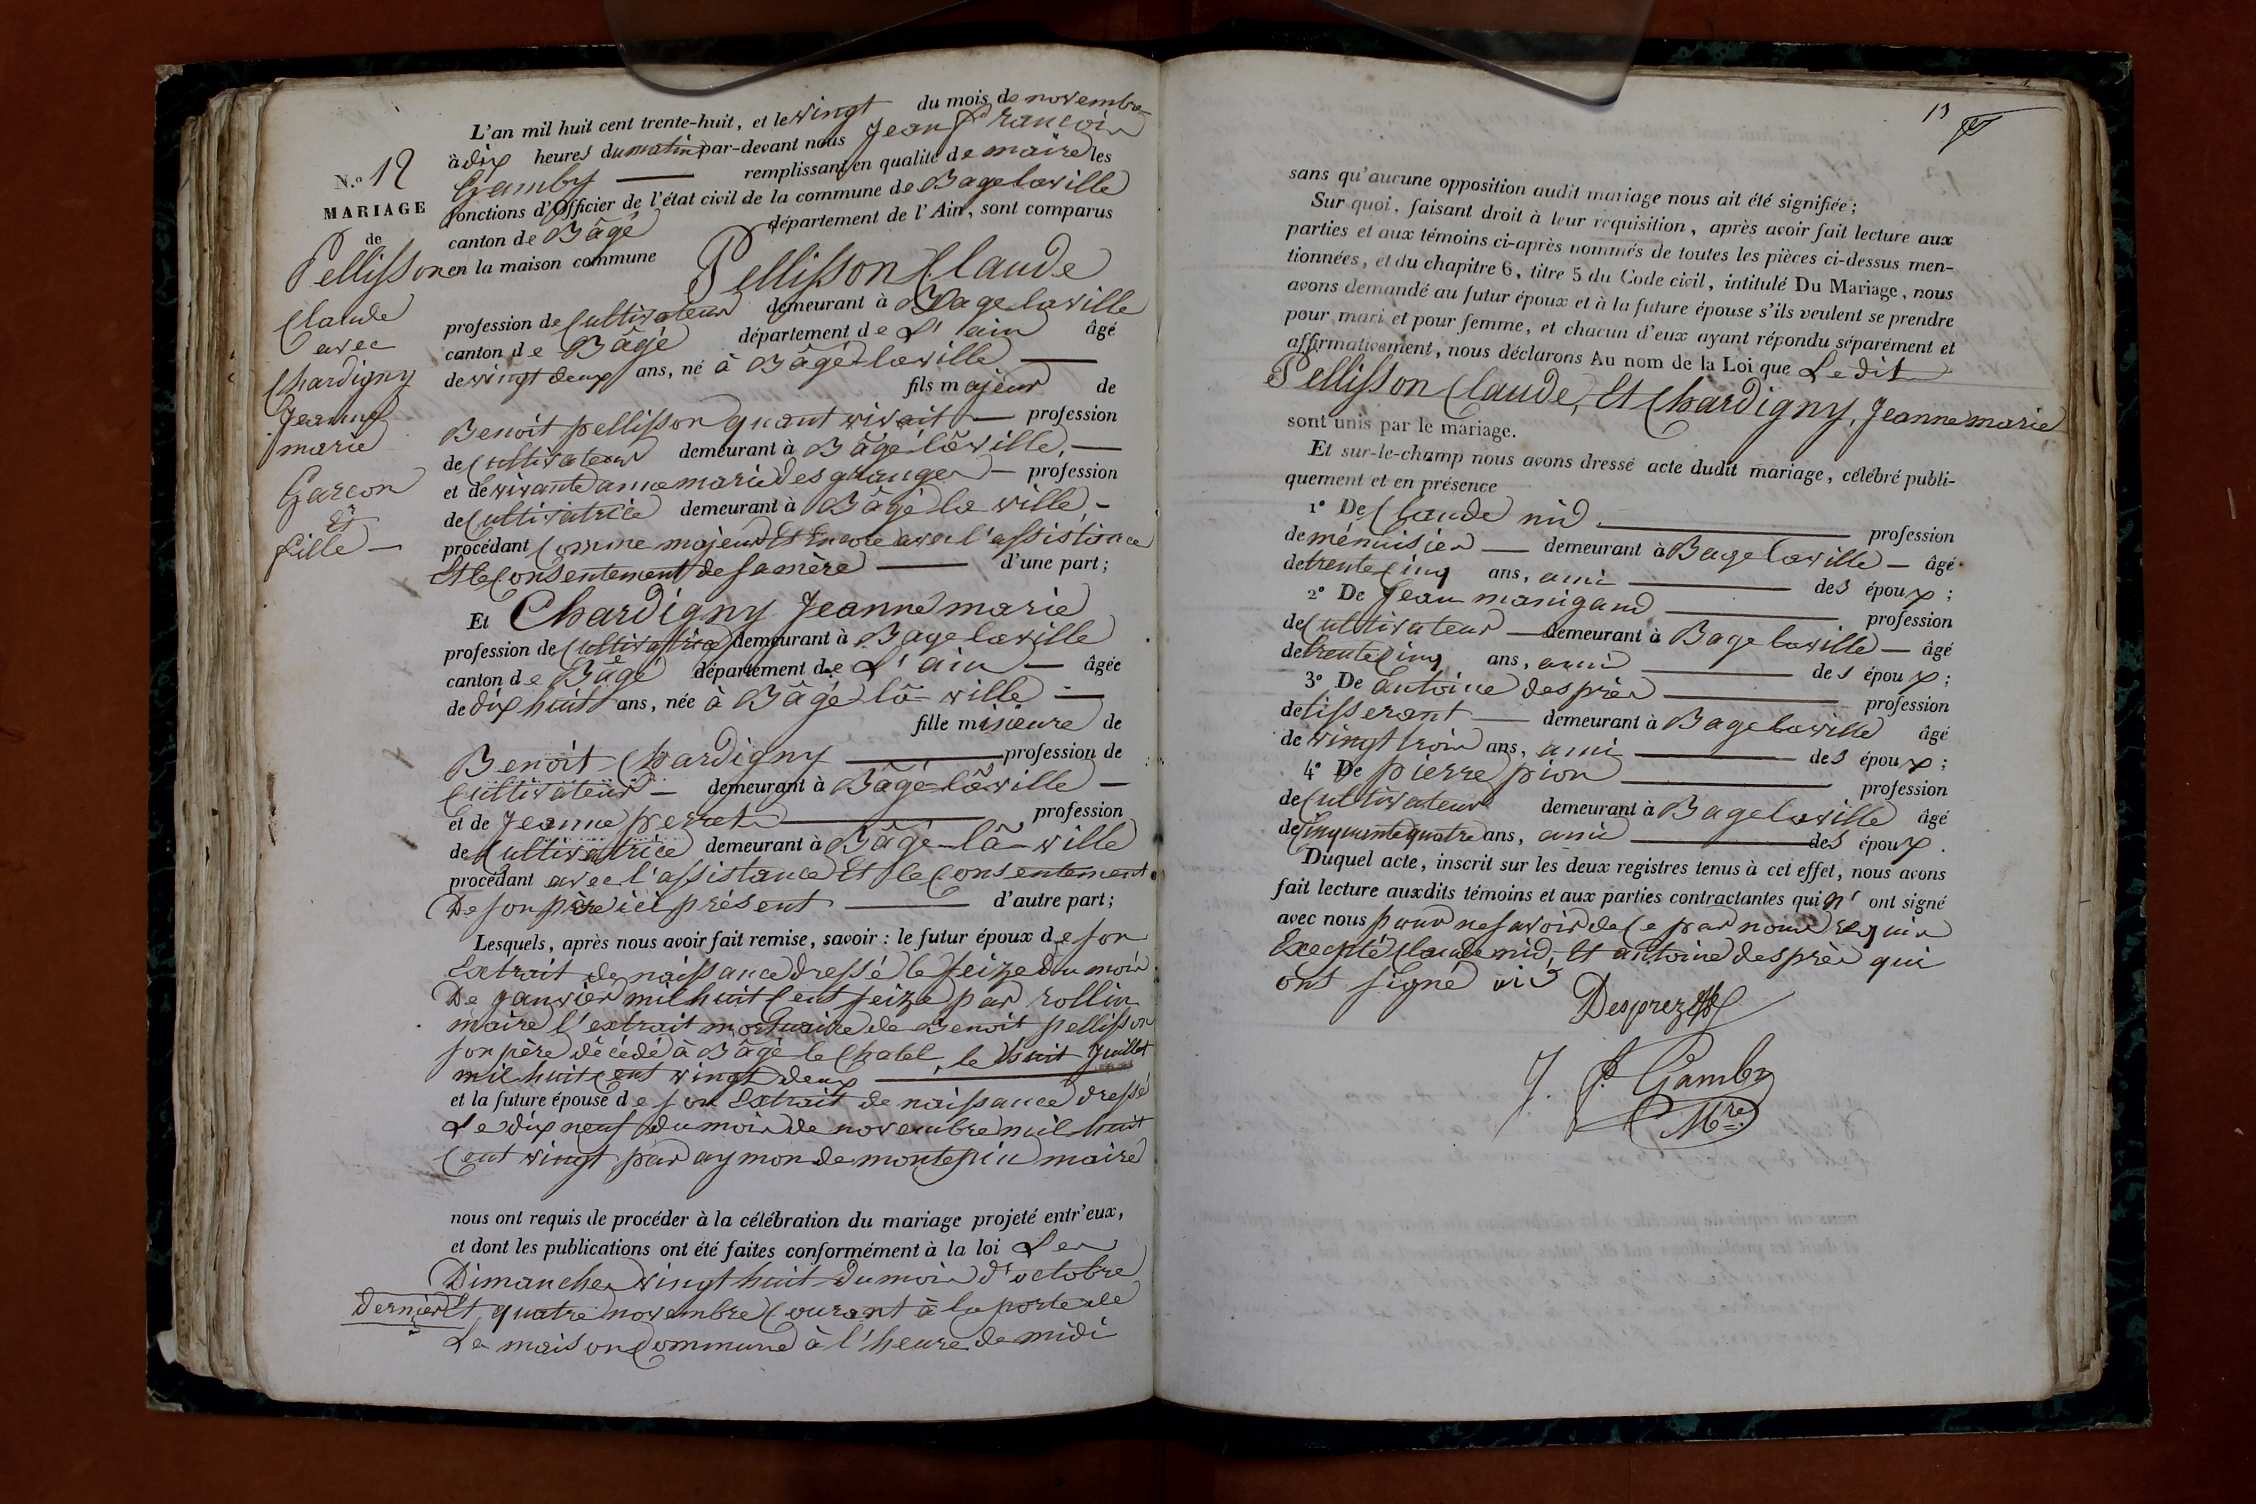 N.o 12
MARIAGE
de
Pellisson
Claude
avec
Chardigny
Jeanne
marie
Garcon
Et
fille —
L'an mil huit cent trente-huit, et le vingt du mois de novembre
à dix heures du matin par-devant nous Jean François
Gamby — remplissant en qualité de maire les
fonctions d'Officier de l'état civil de la commune de Bagelaville
canton de Bâgé département de l'Ain, sont comparus
en la maison commune Pellisson Claude
profession de Cultivateur demeurant à Bagelaville
canton de Bâgé département de L'ain âgé
de vingt deux ans, né à Bâgé laville —
fils majeur de
Benoit pellisson quant vivait — profession
de Cultivateur demeurant à Bâgé lâville, —
et de vivante anne marie desgranger — profession
de Cultivatrice demeurant à Bâgé la ville –
procédant Comme majeur Et Encore avec l'assistance
Et le Consentement de sa mère — d'une part;
Et Chardigny Jeanne marie
profession de Cultivatrice demeurant à Bagelaville
canton de Bâgé département de L'ain — âgée
de dix huit ans, née à Bâgé lâ-ville —
fille mineure de
Benoit Chardigny — profession de
Cultivateur – demeurant à Bâgé-lâville —
et de Jeanne perret — profession
de Cultivatrice demeurant à Bâgé-lâ-ville
procédant avec l'assistance Et le Consentement
De son père ici présent — d'autre part;
Lesquels, après nous avoir fait remise, savoir : le futur époux de son
Extrait de naissance dressé le seize du mois
De janvier mil huit Cent seize par rollin
maire l'extrait mortuaire de Benoit pellisson
son père décédé à Bâgé le Chatel, le huit Juillet
mil huit Cent vingt deux —
et la future épouse de son Extrait de naissance dressé
Le dix neuf du mois de novembre mil huit
Cent vingt par aymon de montepin maire
nous ont requis de procéder à la célébration du mariage projeté entr'eux,
et dont les publications ont été faites conformément à la loi Les
Dimanches vingt huit du mois d'octobre
dernier Et quatre novembre Courant à la porte de
La maison Commune à l'heure de midi
13
sans qu'aucune opposition audit mariage nous ait été signifiée;
Sur quoi, faisant droit à leur réquisition, après avoir fait lecture aux
parties et aux témoins ci-après nommés de toutes les pièces ci-dessus men-
tionnées, et du chapitre 6, titre 5 du Code civil, intitulé Du Mariage, nous
avons demandé au futur époux et à la future épouse s'ils veulent se prendre
pour mari et pour femme, et chacun d'eux ayant répondu séparément et
affirmativement, nous déclarons Au nom de la Loi que Le dit
Pellisson Claude, Et Chardigny, Jeanne marie
sont unis par le mariage.
Et sur-le-champ nous avons dressé acte dudit mariage, célébré publi-
quement et en présence
1° De Claude nid — profession
de ménuisier — demeurant à Bagelaville — âgé
de trente Cinq ans, ami — des époux;
2° De Jean manigand — profession
de Cultivateur — demeurant à Bagelaville — âgé
de trente Cinq ans, ami — des époux;
3° De Antoine desprès — profession
de tisserant — demeurant à Bagelaville âgé
de vingt trois ans, ami — des époux;
4° De pierre pion — profession
de Cultivateur demeurant à Bagelaville âgé
de Cinquante quatre ans, ami — des époux.
Duquel acte, inscrit sur les deux registres tenus à cet effet, nous avons
fait lecture auxdits témoins et aux parties contractantes qui n' ont signé
avec nous pour ne savoir de Ce par nous requis
Excepté Claude nid, Et antoine desprès qui
ont signé
Desprez
J. F. Gamby
Mre